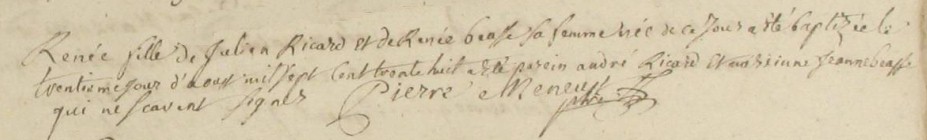 Renée fille de Julien Ricard et de Renée beasse sa femme née de ce jour a été baptizée le
trentieme jour d'aoust mil sept cent trente huit a été parein andré Ricard et maraine jeanne beasse
qui ne scavent signer Pierre Meneust